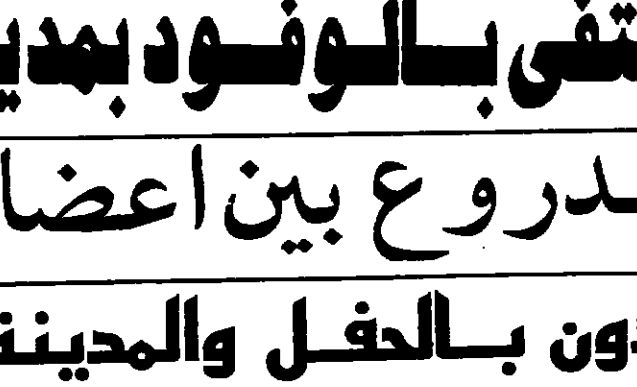 تفى بالوفود بمدي
لدروع بين اعضا
دون بالحفل والمدينة